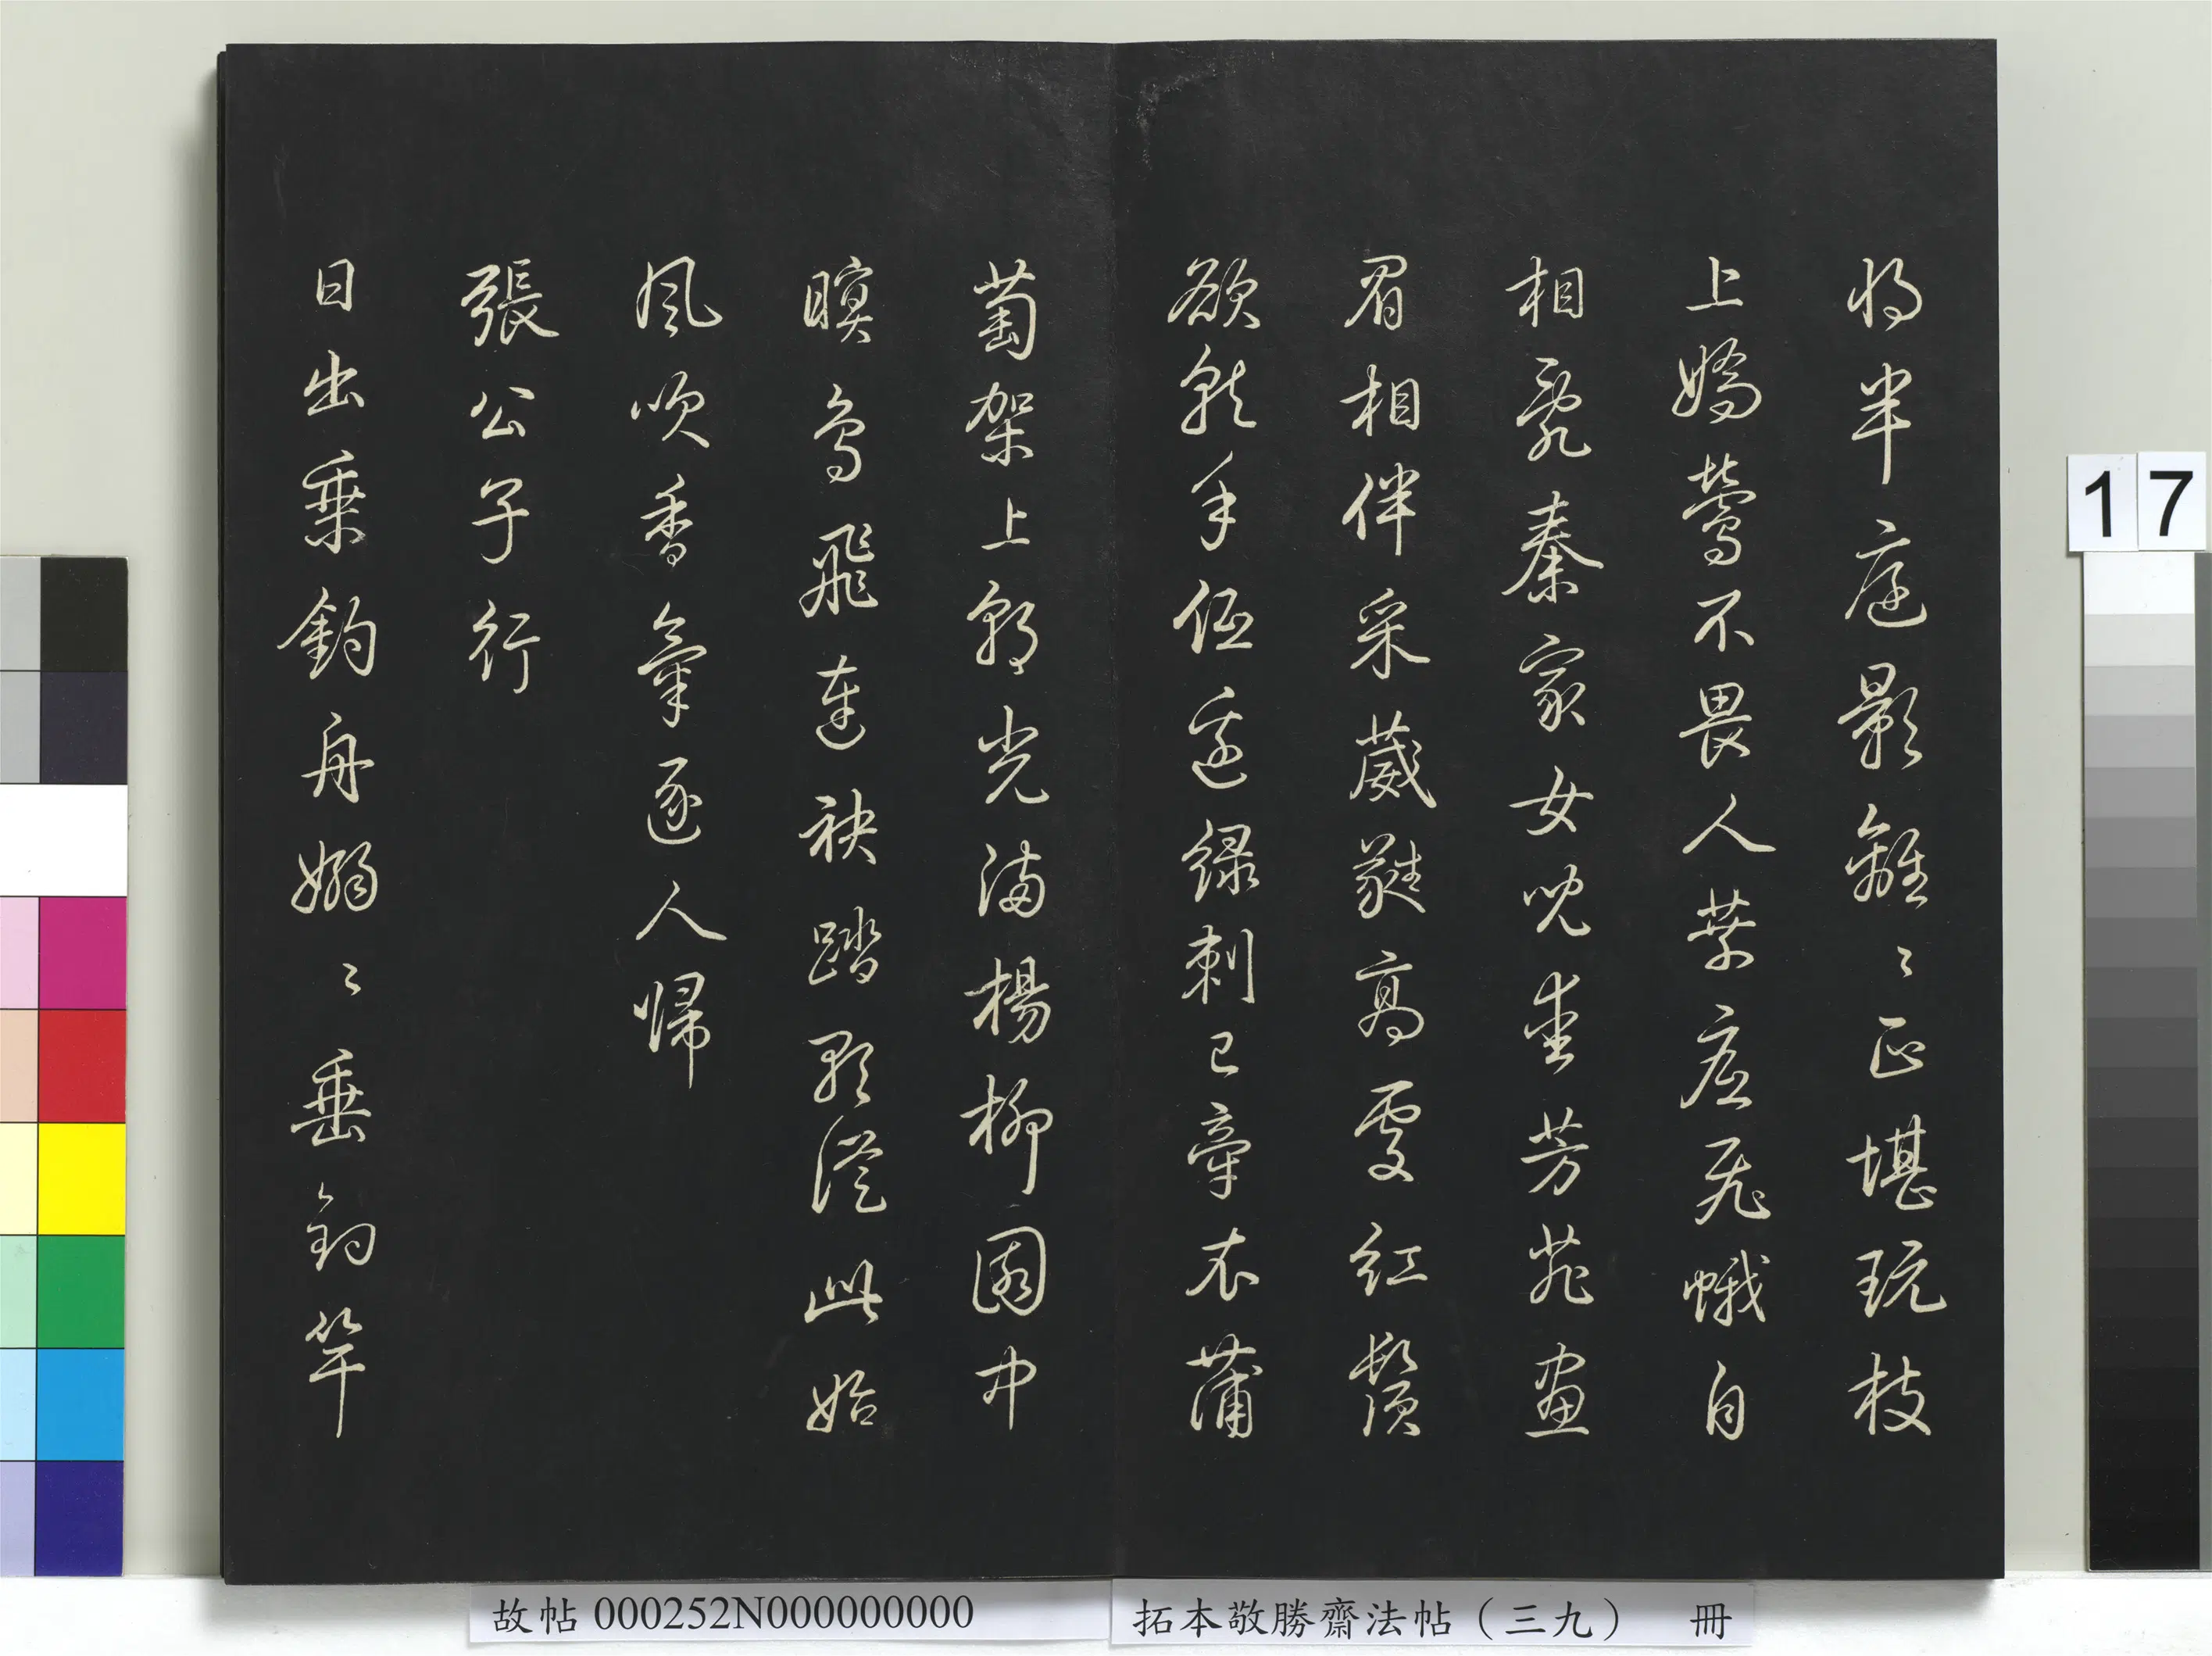 將半庭影離々正堪玩枝
上嬌鶯不畏人葉底飛蛾自
相亂秦家女兒愛芳菲畫
眉相伴采葳蕤高處紅鬚
欲就手低邊綠刺已牽衣蒲
萄架上朝光滿楊柳園中
瞑鳥飛連袂踏歌從此始
風吹香氣逐人歸
張公子行
日出乘釣舟嫋々垂釣竿
17
故帖 000252N000000000
拓本敬勝齋法帖（三九） 冊